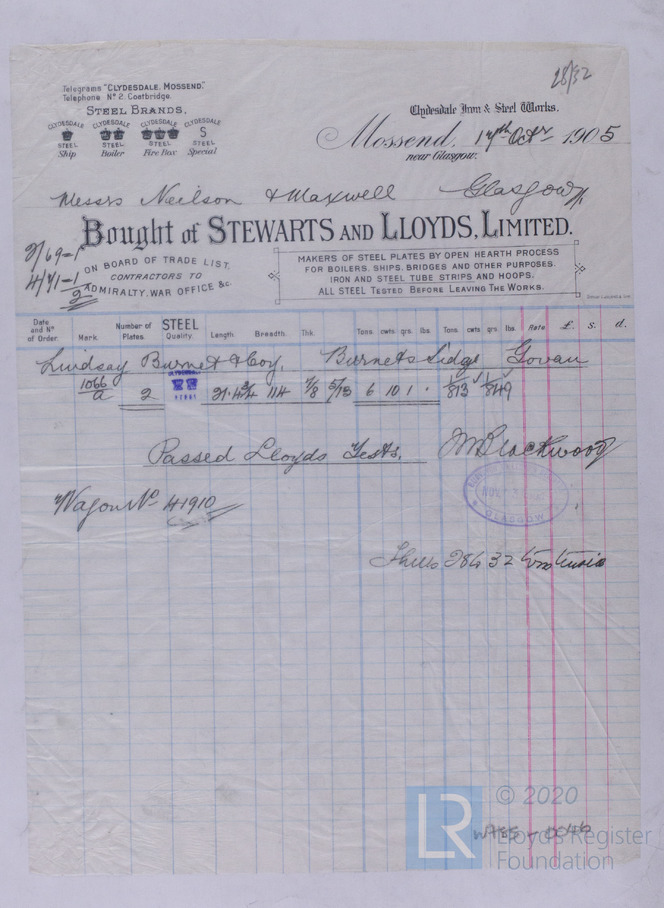 28/32
Telegrams "CLYDESDALE, MOSSEND."
Telephone No 2, Coatbridge.
STEEL BRANDS,
CLYDESDALE CLYDESDALE CLYDESDALE CLYDESDALE
S
STEEL STEEL STEEL STEEL
Ship Boiler Fire Box Special
Clydesdale Iron & Steel Works.
Mossend, 17th Octr 1905
near Glasgow.
Messrs Neilson & Maxwell Glasgow
Bought of STEWARTS AND LLOYDS, LIMITED.
2/69-1
4/71-1
2
ON BOARD OF TRADE LIST,
CONTRACTORS TO
ADMIRALTY, WAR OFFICE &c.
MAKERS OF STEEL PLATES BY OPEN HEARTH PROCESS
FOR BOILERS, SHIPS, BRIDGES AND OTHER PURPOSES.
IRON AND STEEL TUBE STRIPS AND HOOPS.
ALL STEEL TESTED BEFORE LEAVING THE WORKS.
Date and No of Order. Mark. Number of Plates. STEEL Quality. Length. Breadth. Thk. Tons. cwts. qrs. lbs. Tons. cwts. qrs. lbs. Rate £. s. d.
Lindsay Burnet & Coy, Burnets Sidge Govan
1066/a 2 CLYDESDALE STEEL 114 7/8 6 10 1 .
Passed Lloyds Tests. Blackwood
GLASGOW
Wagon No 41910
Shells 28 & 32 tons tensile
LR
© 2020
Lloyd's Register
Foundation
W785-0046